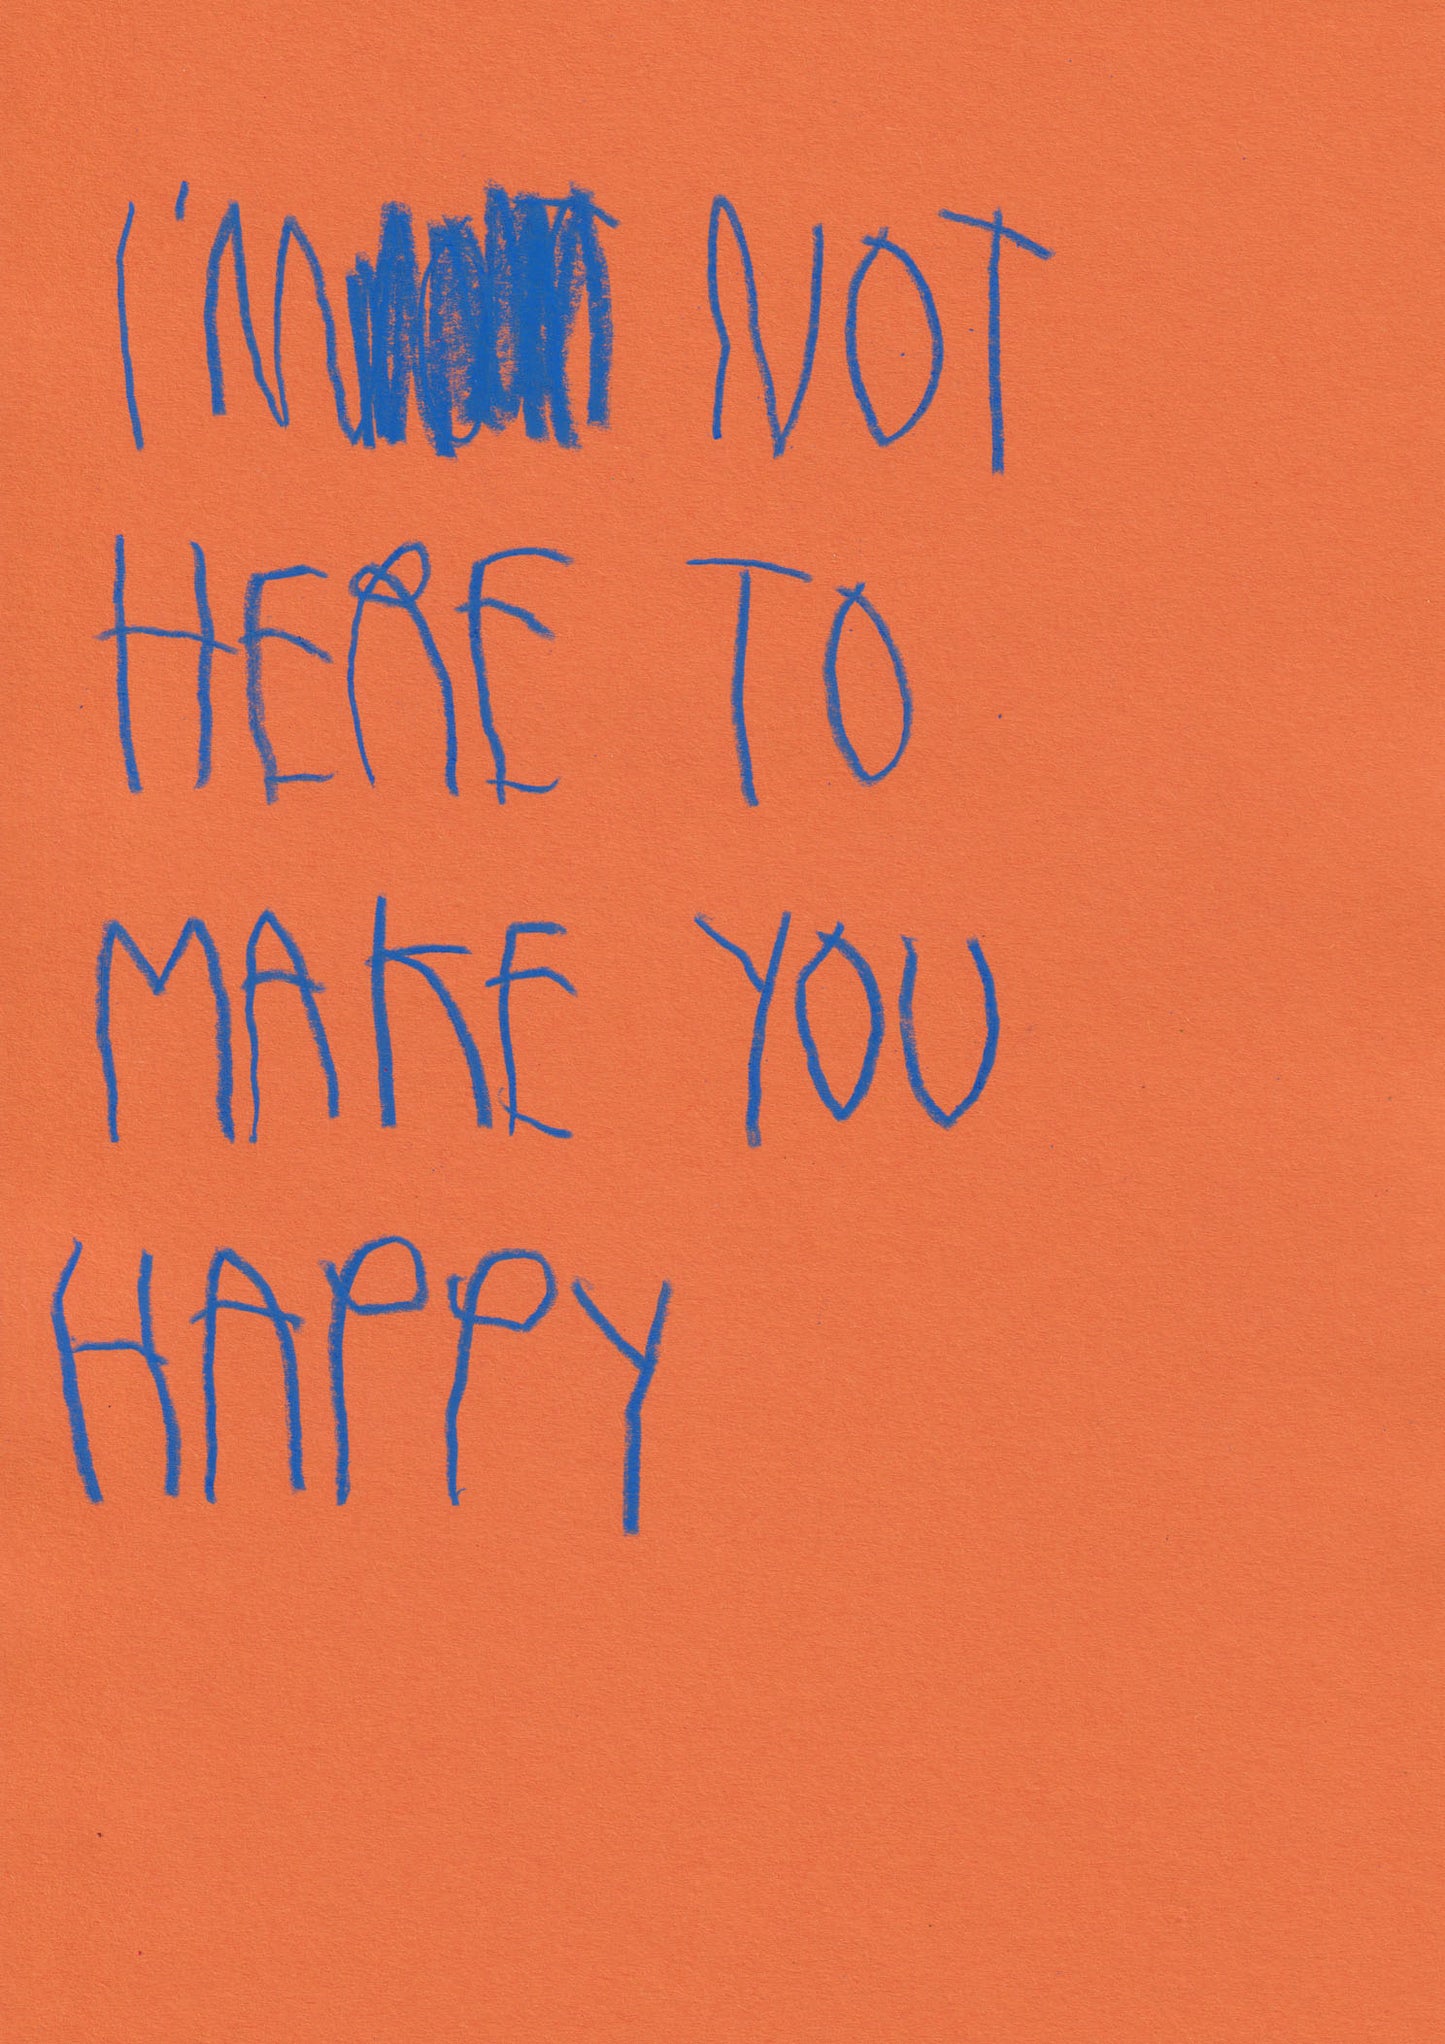 I'M NOT
HERE TO
MAKE YOU
HAPPY